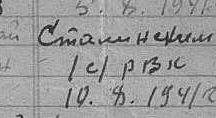 5. 8. 194
ай Сталинским
/с/ РВК
10. 8. 1941